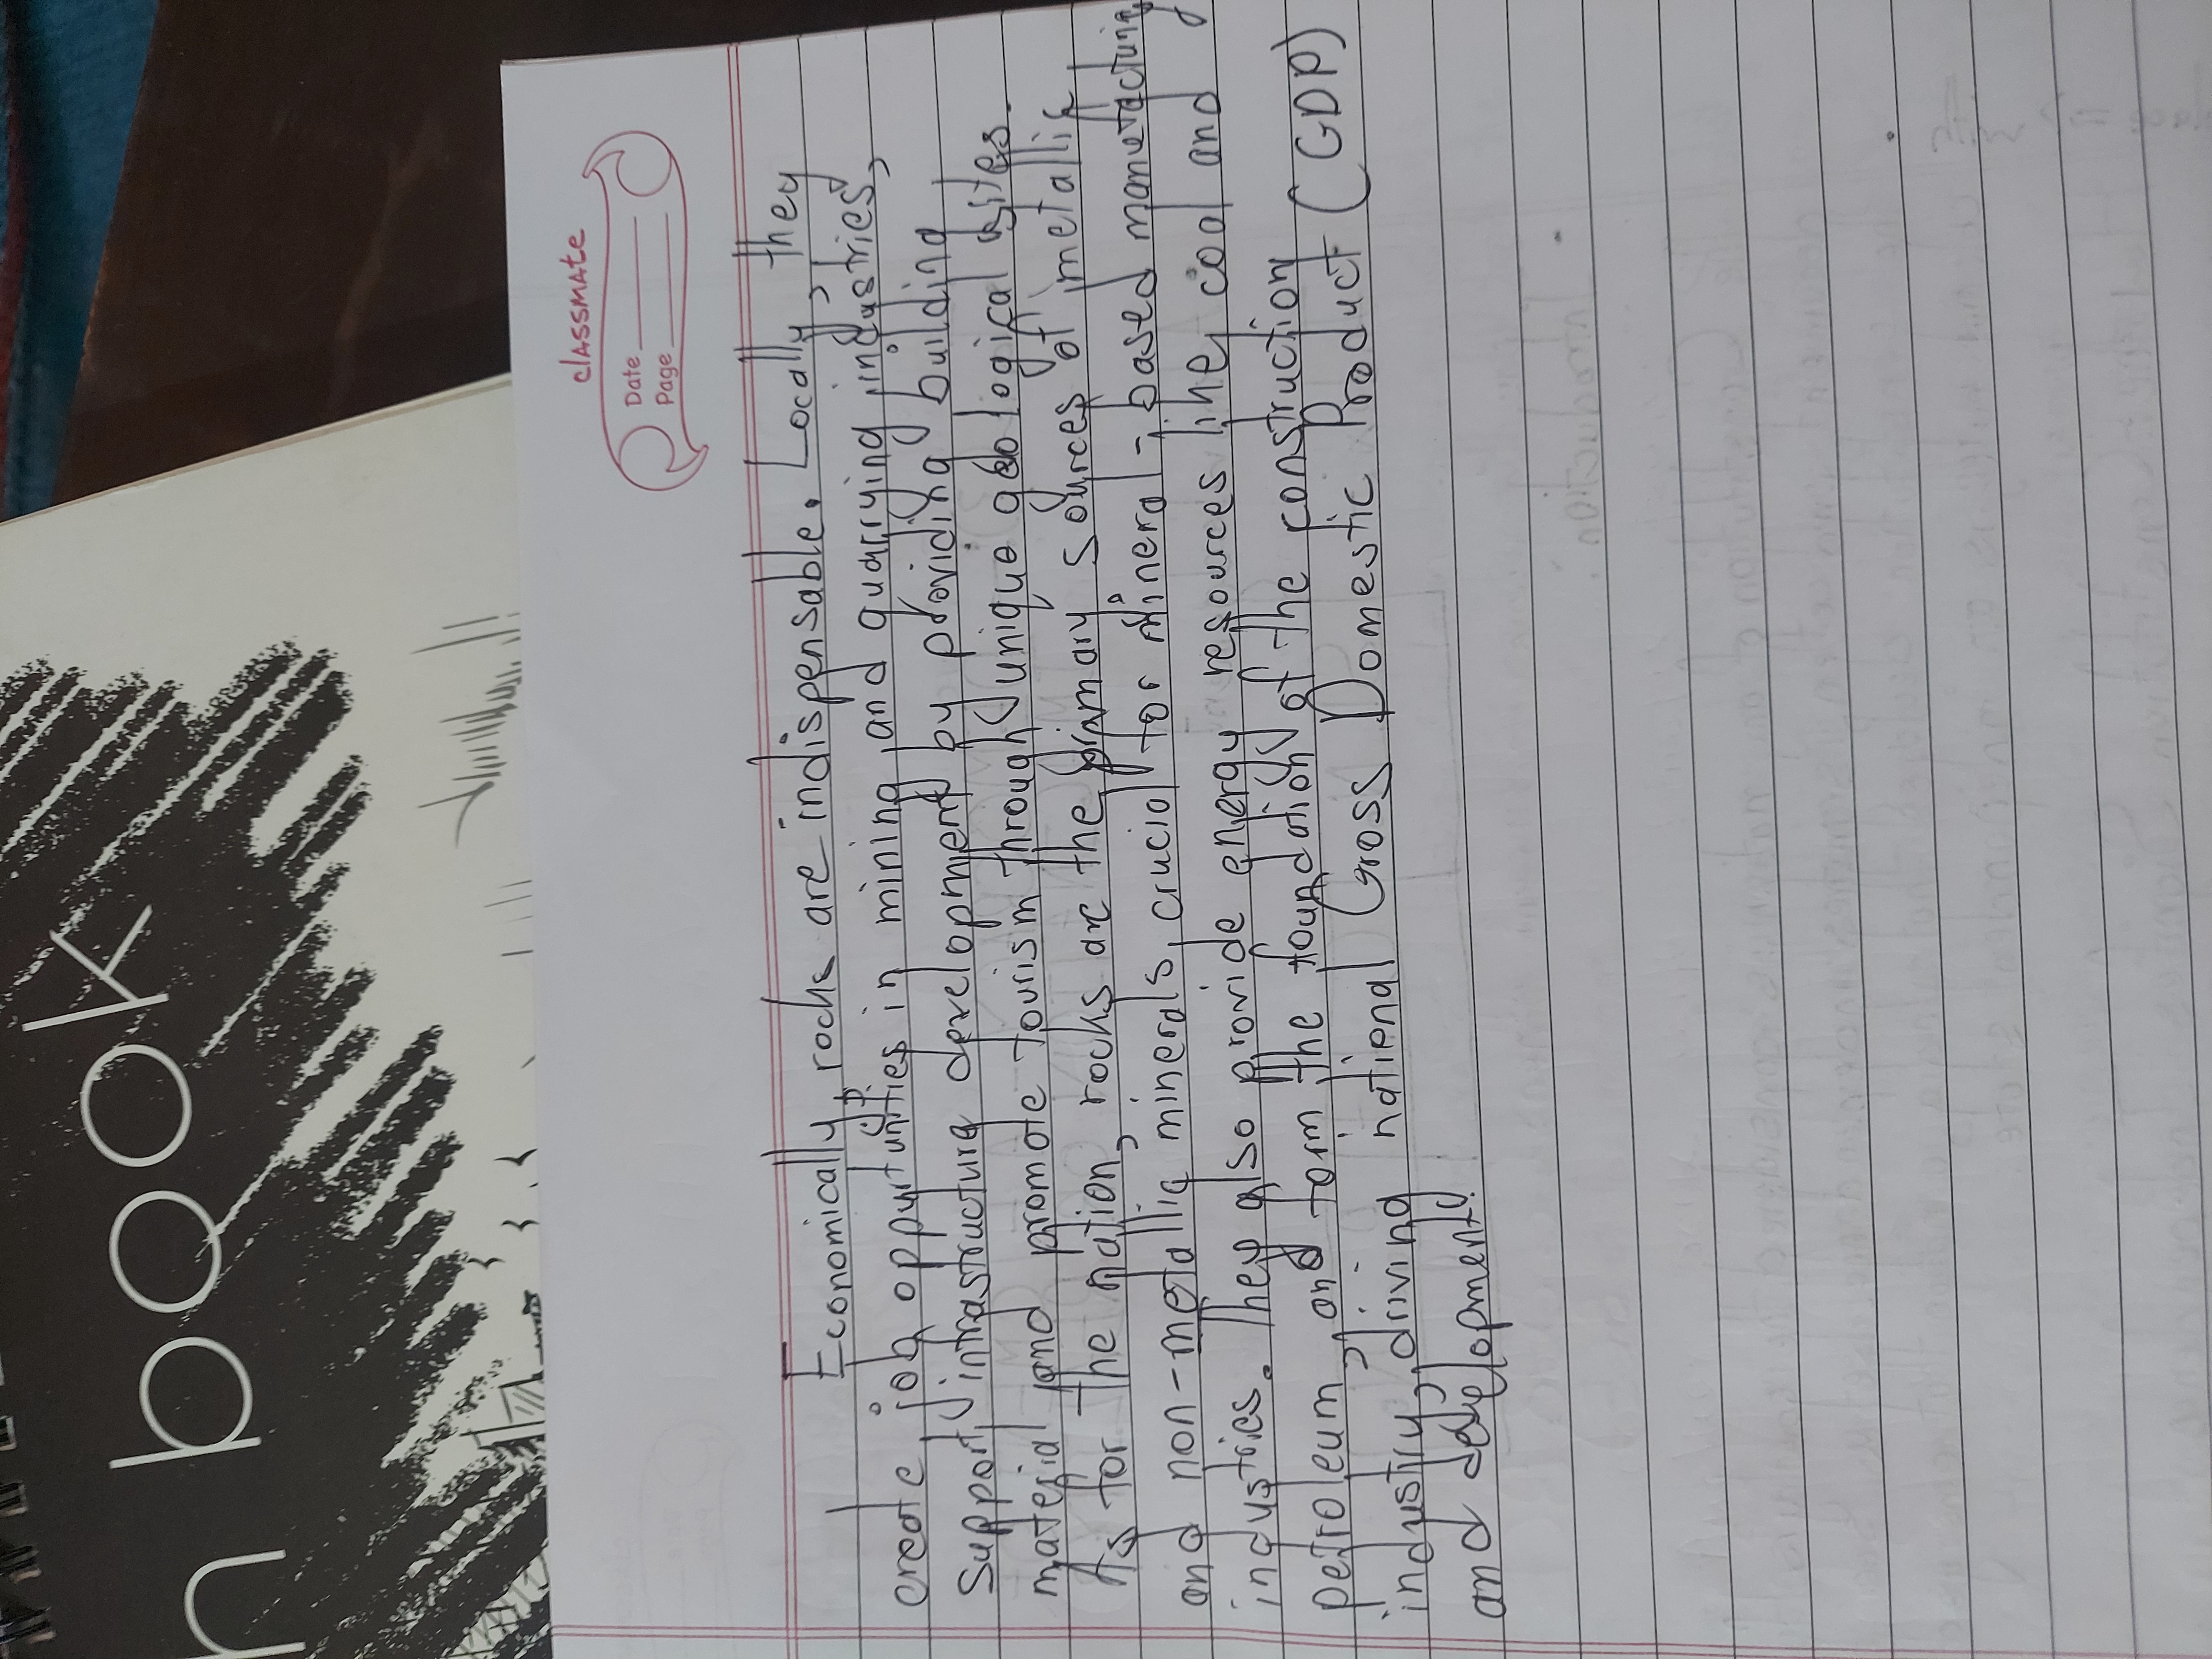 n book
classmate
Date
Page
Economically rocks are indispensable. Locally, they
create job oppurtunities in mining and quarrying industries,
support infrastructure development by providing building
material and promote tourism through unique geological sites.
As for the nation, rocks are the primary sources of metallic
and non-metallic minerals, crucial for mineral-based manufacturing
industries. They also provide energy resources like coal and
petroleum, and form the foundation of the construction
industry, driving national Gross Domestic Product (GDP)
and development.